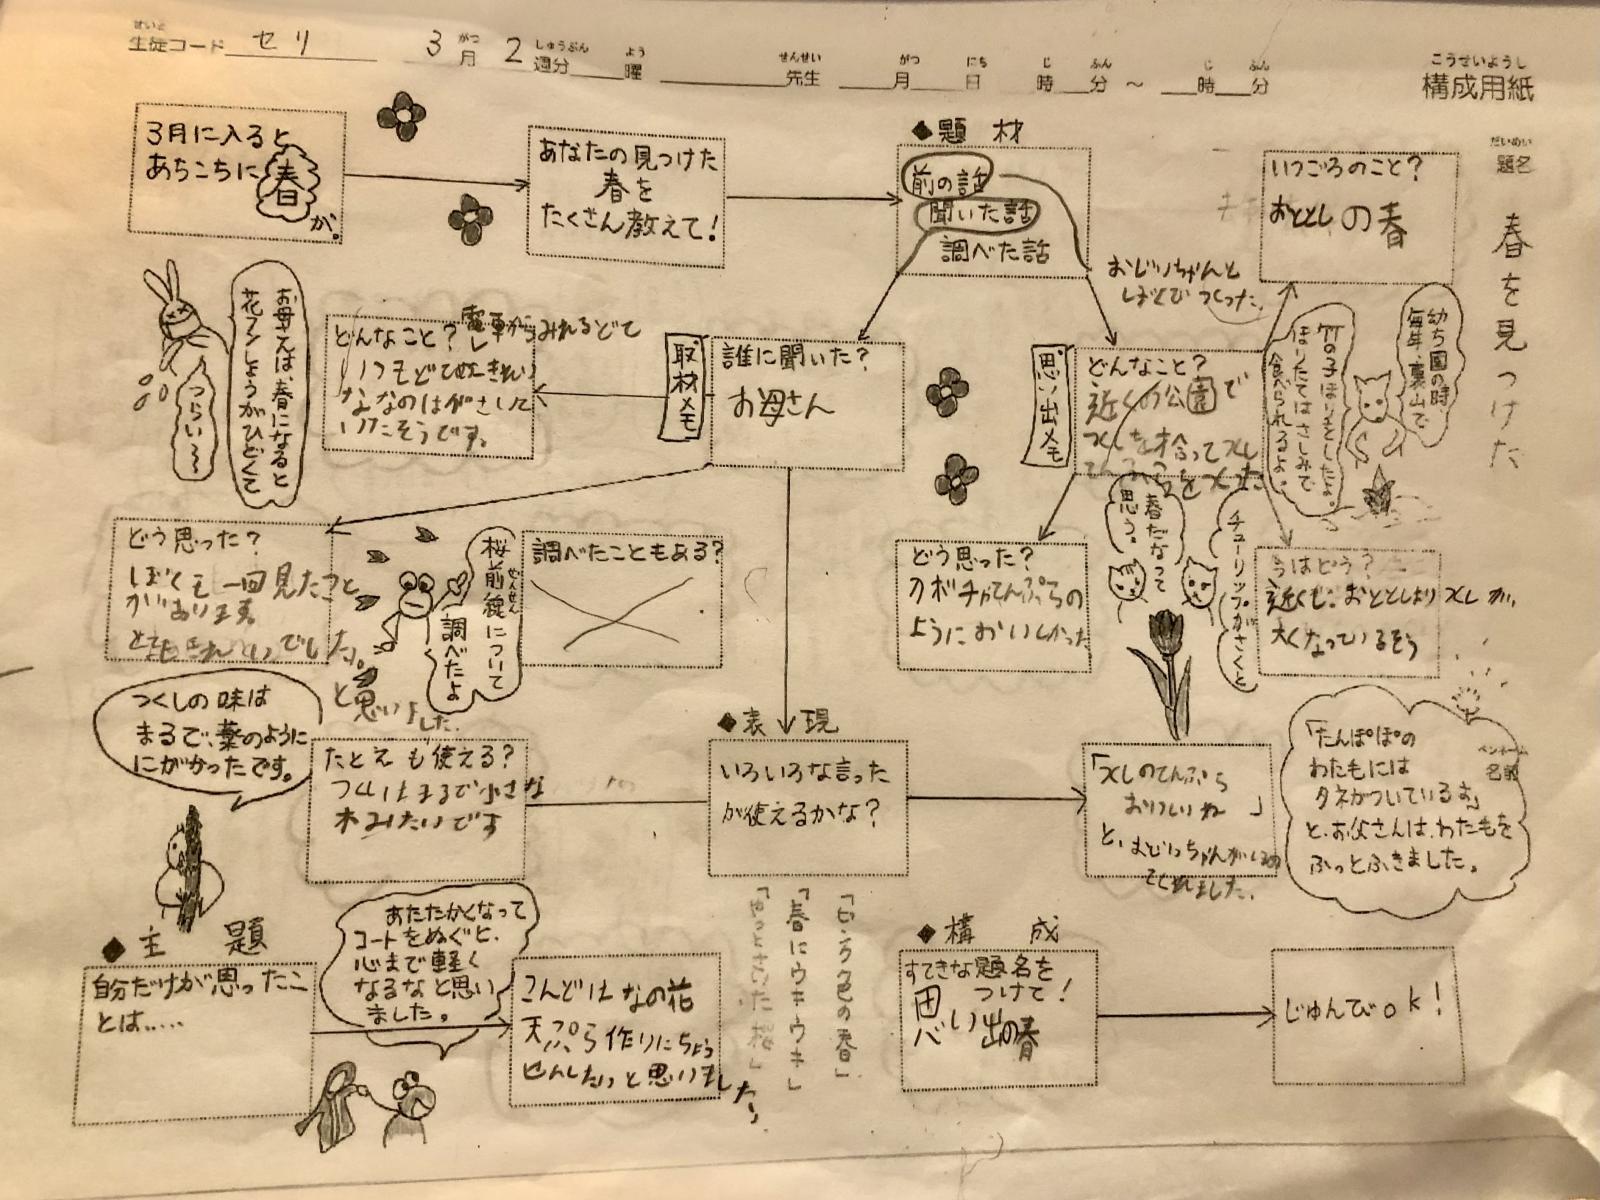 せいと
生徒コード セリ 3月 2週分 曜 先生 月 日 時 分 〜 時 分
がつ しゅうぶん よう せんせい がつ にち じ ふん じ ふん
こうせいようし
構成用紙
だいめい
題名
春を見つけた
ペンネーム
名前
3月に入ると
あちこちに春
が。
あなたの見つけた
春を
たくさん教えて!
◆題材
前の話
聞いた話
調べた話
おじいちゃんと
ぼくでつくった。
いつごろのこと?
おととしの春
幼ち園の時、
毎年、裏山で
竹の子ほりをしたよ。
ほりたてはさしみで
食べられるよ。
思い出メモ
どんなこと?
近くの公園で
つくしを拾ってつくし
てんぷらをつくった
取材メモ
誰に聞いた?
お母さん
どんなこと?電車からみれるどて
いつもどてめんきれい
ななのはがさいて
いたそうです。
お母さんは、春になると
花フンしょうがひどくて
つらい〜
どう思った?
ぼくも一回見たこと
があります。
とてもきれいでした。
と思いました。
桜前線について
せんせん
調べたよ
調べたこともある?
どう思った?
カボチャてんぷらの
ようにおいしかった
チューリップがさくと
春だなって
思う。
今はどう?
近くも、おととしよりつくしが、
大くなっているそう
つくしの味は
まるで、薬のように
にがかったです。
たとえも使える?
つくしはまるで小さな
木みたいです
◆表現
いろいろな言った
が使えるかな?
「つくしのてんぷら
おいしいね」
と、おじいちゃんがほめ
てくれました。
「たんぽぽの
わたもには
タネがついているよ」
と、お父さんは、わたもを
ふっとふきました。
「ピンク色の春」
「春にウキウキ」
「やっとさいた桜」
◆主題
自分だけが思ったこ
とは……
あたたかくなって
コートをぬぐと、
心まで軽く
なるなと思い
ました。
こんどはなの花
天ぷら作りにちょう
せんしたいと思いました。
◆構成
すてきな題名を
つけて!
思い出の春
じゅんびok!